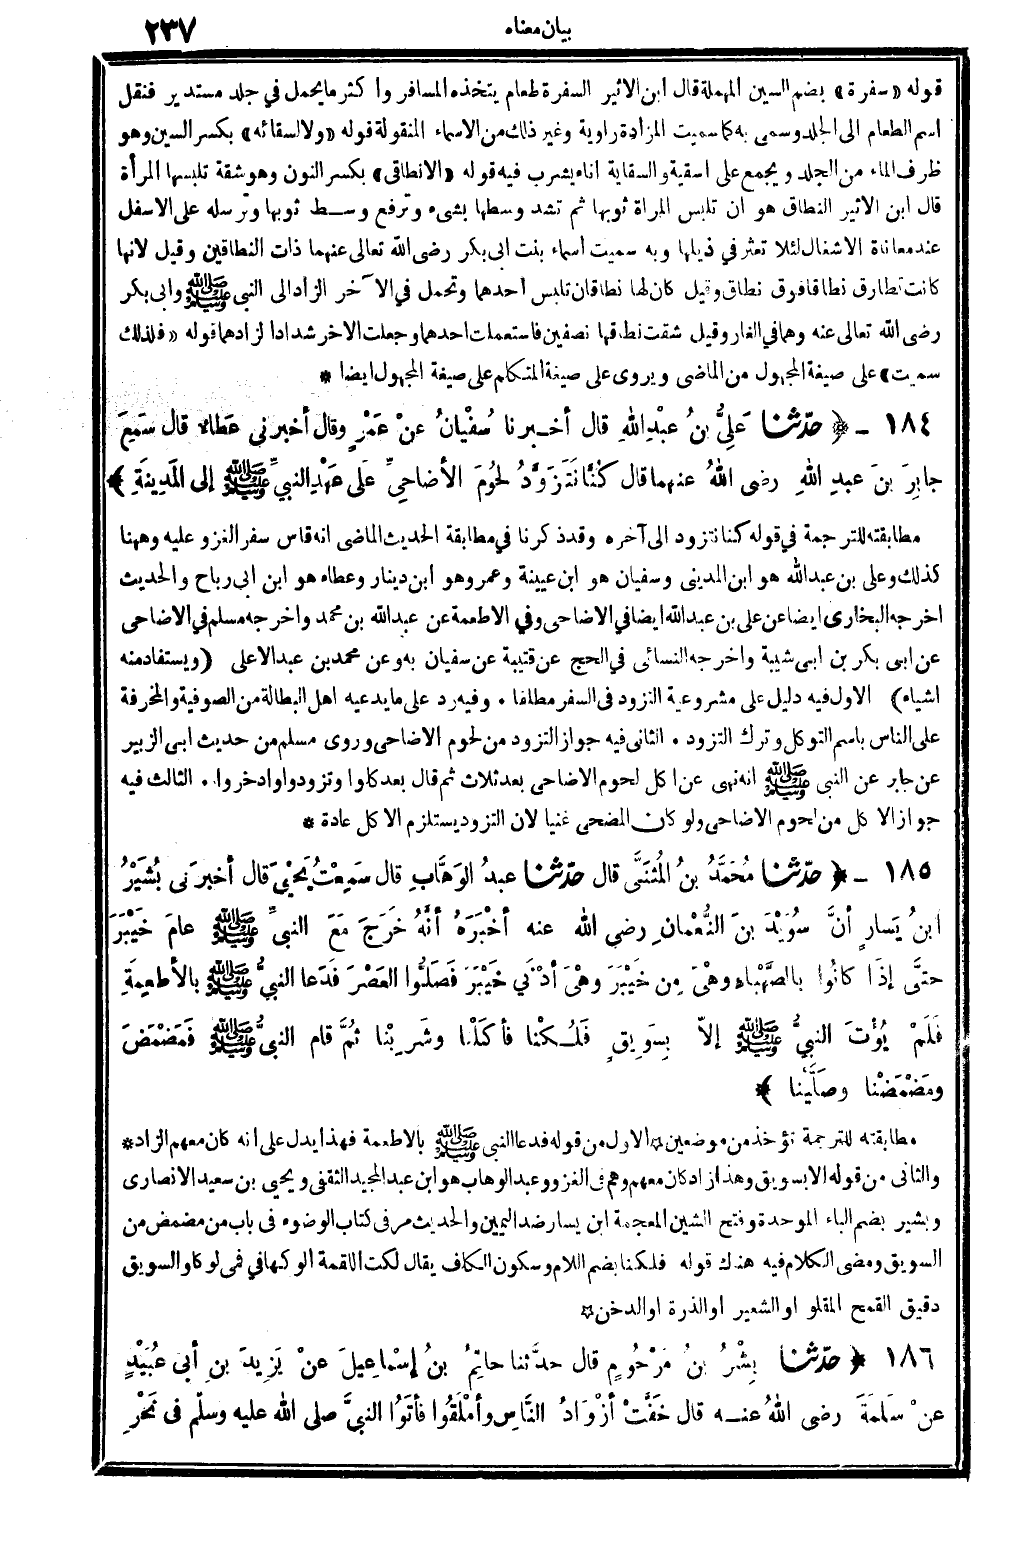 بيان معناه ٢٣٧
قوله «سفرة» بضم السين المهملة قال ابن الاثير السفرة طعام يتخذه المسافر وا كثر مايحمل في جلد مستدير فنقل
اسم الطعام الى الجلد وسمى به كما سميت المزادة راوية وغير ذلك من الاسماء المنقولة قوله «ولا لسقائه» بكسر السين وهو
ظرف الماء من الجلد ويجمع على اسقية والسقاية اناء يشرب فيه قوله «الا نطاقى» بكسر النون وهو شقة تلبسها المرأة
قال ابن الاثير النطاق هو ان تلبس المراة ثوبها ثم تشد وسطها بشىء وترفع وسط ثوبها وترسله على الاسفل
عند معاناة الاشغال لئلا تعثر في ذيلها وبه سميت أسماء بنت ابى بكر رضى الله تعالى عنهما ذات النطاقين وقيل لانها
كانت تطارق نطاقا فوق نطاق وقيل كان لها نطاقان تلبس أحدهما وتحمل في الآخر الزاد الى النبي ﷺ وابى بكر
رضى الله تعالى عنه وهما في الغار وقيل شقت نطاقها نصفين فاستعملت احدهما وجعلت الاخر شدادا لزادهما قوله «فلذلك
سميت» على صيغة المجهول من الماضى ويروى على صيغة المتكلم على صيغة المجهول ايضا *
١٨٤ - ﴿ حدّثنا عَلِيُّ بنُ عبْدِ اللهِ قال أخـبرنا سُفْيانُ عنْ عَمْرٍ وقال أخبرنى عَطاء قال سَمِعَ
جابِرَ بنَ عبدِ اللهِ رضى اللهُ عنهما قال كُنَّا نَتَزَوَّدُ لحُومَ الأضاحِىِّ عَلى عَهْدِ النبيِّ ﷺ إلى المَدِينَةِ ﴾
مطابقته للترجمة في قوله كنا نتزود الى آخره وقد ذكرنا في مطابقة الحديث الماضى انه قاس سفر الغزو عليه وههنا
كذلك وعلى بن عبدالله هو ابن المدينى وسفيان هو ابن عيينة وعمرو هو ابن دينار وعطاء هو ابن ابى رباح والحديث
اخرجه البخارى ايضا عن على بن عبدالله ايضا في الاضاحى وفي الاطعمة عن عبدالله بن محمد واخرجه مسلم في الاضاحى
عن ابى بكر بن ابى شيبة واخرجه النسائى في الحج عن قتيبة عن سفيان به وعن محمد بن عبد الاعلى (ويستفاد منه
اشياء) الاول فيه دليل على مشروعية التزود فى السفر مطلقا . وفيه رد على مايدعيه اهل البطالة من الصوفية والمخرفة
على الناس باسم التوكل وترك التزود . الثانى فيه جواز التزود من لحوم الاضاحى وروى مسلم من حديث ابى الزبير
عن جابر عن النبى ﷺ انه نهى عن اكل لحوم الاضاحى بعد ثلاث ثم قال بعد كلوا وتزودوا وادخروا . الثالث فيه
جواز الاكل من لحوم الاضاحى ولو كان المضحى غنيا لان التزود يستلزم الاكل عادة *
١٨٥ - ﴿ حدّثنا مُحَمَّدُ بنُ المُثَنَّى قال حدّثنا عبدُ الوَهَّابِ قال سَمِعْتُ يَحْيَى قال أخبرَنى بُشَيْرُ
ابنُ يَسارٍ أنَّ سُوَيْدَ بنَ النُّعْمانِ رضي الله عنه أخْبَرَهُ أنَّهُ خَرَجَ مَعَ النبيِّ ﷺ عامَ خَيْبَرَ
حتَّى إذَا كانُوا بالصَّهْباءِ وهْىَ مِن خَيْبَرَ وهْىَ أدْنَي خَيْبَرَ فَصَلُّوا العَصْرَ فَدَعا النبيُّ ﷺ بالأطْعِمَةِ
فَلَمْ يُؤْتَ النبيُّ ﷺ إلاّ بِسَوِيقٍ فَلُـكْنا فأكَلْنا وشَرِبْنا ثُمَّ قام النبيُّ ﷺ فَمَضْمَضَ
ومَضْمَضْنا وصَلَّيْنا ﴾
مطابقته للترجمة تؤخذ من موضعين * الاول من قوله فدعا النبى ﷺ بالاطعمة فهذا يدل على انه كان معهم الزاد *
والثانى من قوله الا بسويق وهذا زاد كان معهم وهم فى الغزو وعبد الوهاب هو ابن عبد المجيد الثقفى ويحيى بن سعيد الانصارى
وبشير بضم الباء الموحدة وفتح الشين المعجمة ابن يسار ضد اليمين والحديث مر فى كتاب الوضوء فى باب من مضمض من
السويق ومضى الكلام فيه هناك قوله فلكنا بضم اللام وسكون الكاف يقال لكت اللقمة الوكها في فمى لوكا والسويق
دقيق القمح المقلو او الشعير او الذرة او الدخن *
١٨٦ ﴿ حدّثنا بِشْرُ بنُ مَرْحُومٍ قال حدَّثنا حاتِمُ بنُ إسْماعِيلَ عنْ يَزِيدَ بنِ أبى عُبَيْدٍ
عنْ سَلَمَةَ رضى اللهُ عنـه قال خَفَّتْ أزْوَادُ النَّاسِ وأمْلَقُوا فأتَوُا النبيَّ صلى الله عليه وسلّم فى نَحْرِ